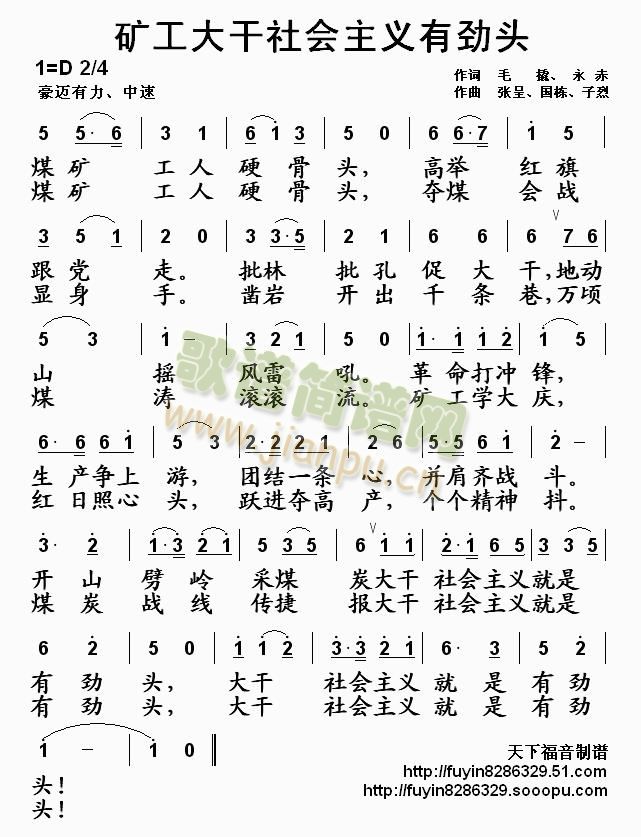 矿工大干社会主义有劲头
1=D 2/4
作词 毛 撬、永 赤
豪迈有力、中速
作曲 张呈、国栋、子烈
5 5· 6 | 3 1 | 6 1 3 | 5 0 | 6 6· 7 | 1 5
煤矿 工人硬骨头，高举 红旗
煤矿 工人硬骨头，夺煤 会战
3 5 1 | 2 0 | 3 3· 5 | 2 1 | 6 6 | 6 7 6
跟党 走。批林 批孔促大干，地动
显身 手。凿岩 开出千条巷，万顷
5 3 | 1 – | 3 2 1 | 5 0 | 1· 1 1 1 2 | 1 5
山 摇 风雷 吼。革命打冲 锋，
煤 涛 滚滚 流。矿工学大 庆，
歌谱简谱网
www.jianpu.cn
6· 6 6 6 1 | 5 3 | 2· 2 2 2 1 | 2 6 | 5· 5 6 1 | 2 –
生产争上 游，团结一条 心，并肩齐战 斗。
红日照心 头，跃进夺高 产，个个精神 抖。
3· 2 | 1· 3 2 1 | 5 3 5 | 6 1 | 2· 1 6 5 | 3 5 2 3
开山 劈岭 采煤 炭大干 社会主义就是
煤炭 战线 传捷 报大干 社会主义就是
6 2 | 5 0 | 1 1 2 | 3· 3 2 1 | 6· 3 | 5 2
有劲 头，大干 社会主义 就是 有劲
有劲 头，大干 社会主义 就是 有劲
1 – | 1 0
头！
头！
天下福音制谱
http://fuyin8286329.51.com
http://fuyin8286329.sooopu.com